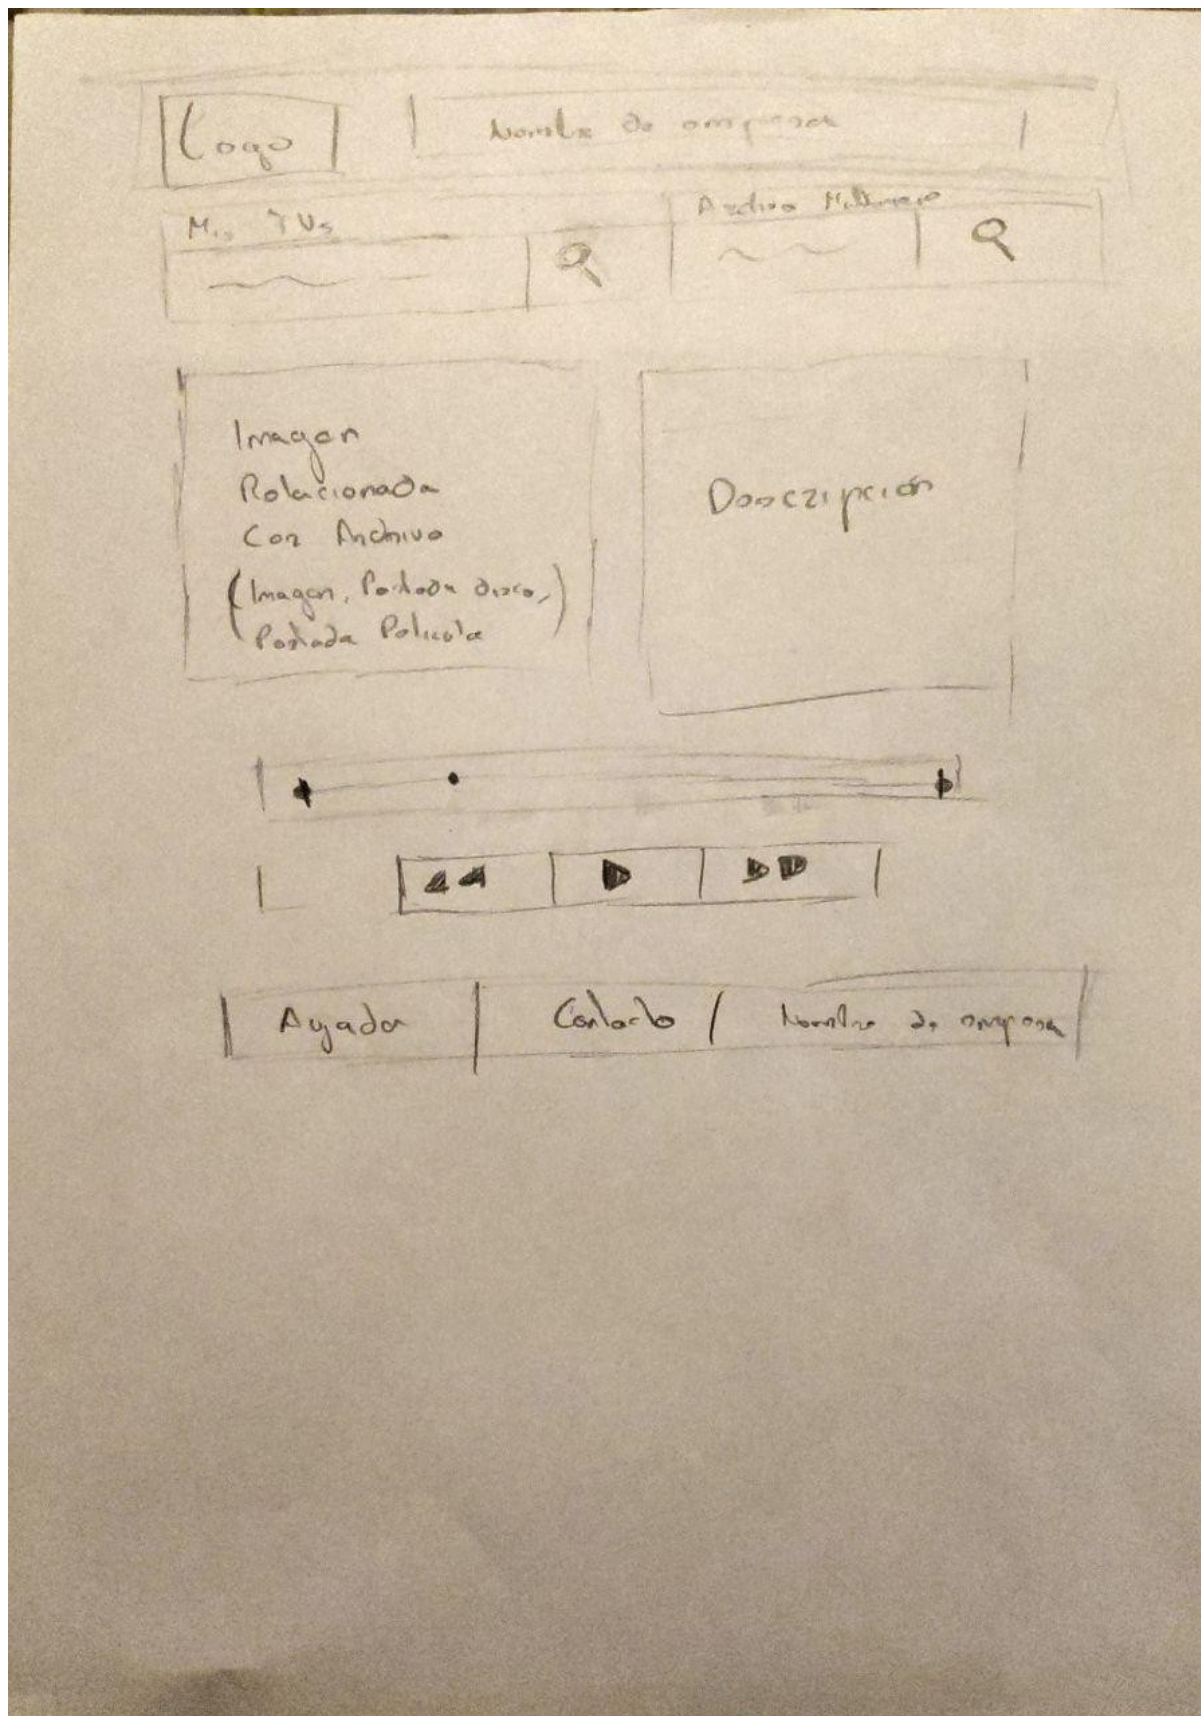 Logo
Nombre de empresa
Mis TVs
Archivo Multimedia
Imagen
Relacionada
Con Archivo
(Imagen, Portada disco,
Portada Pelicula)
Descripción
Ayuda
Contacto
Nombre de empresa